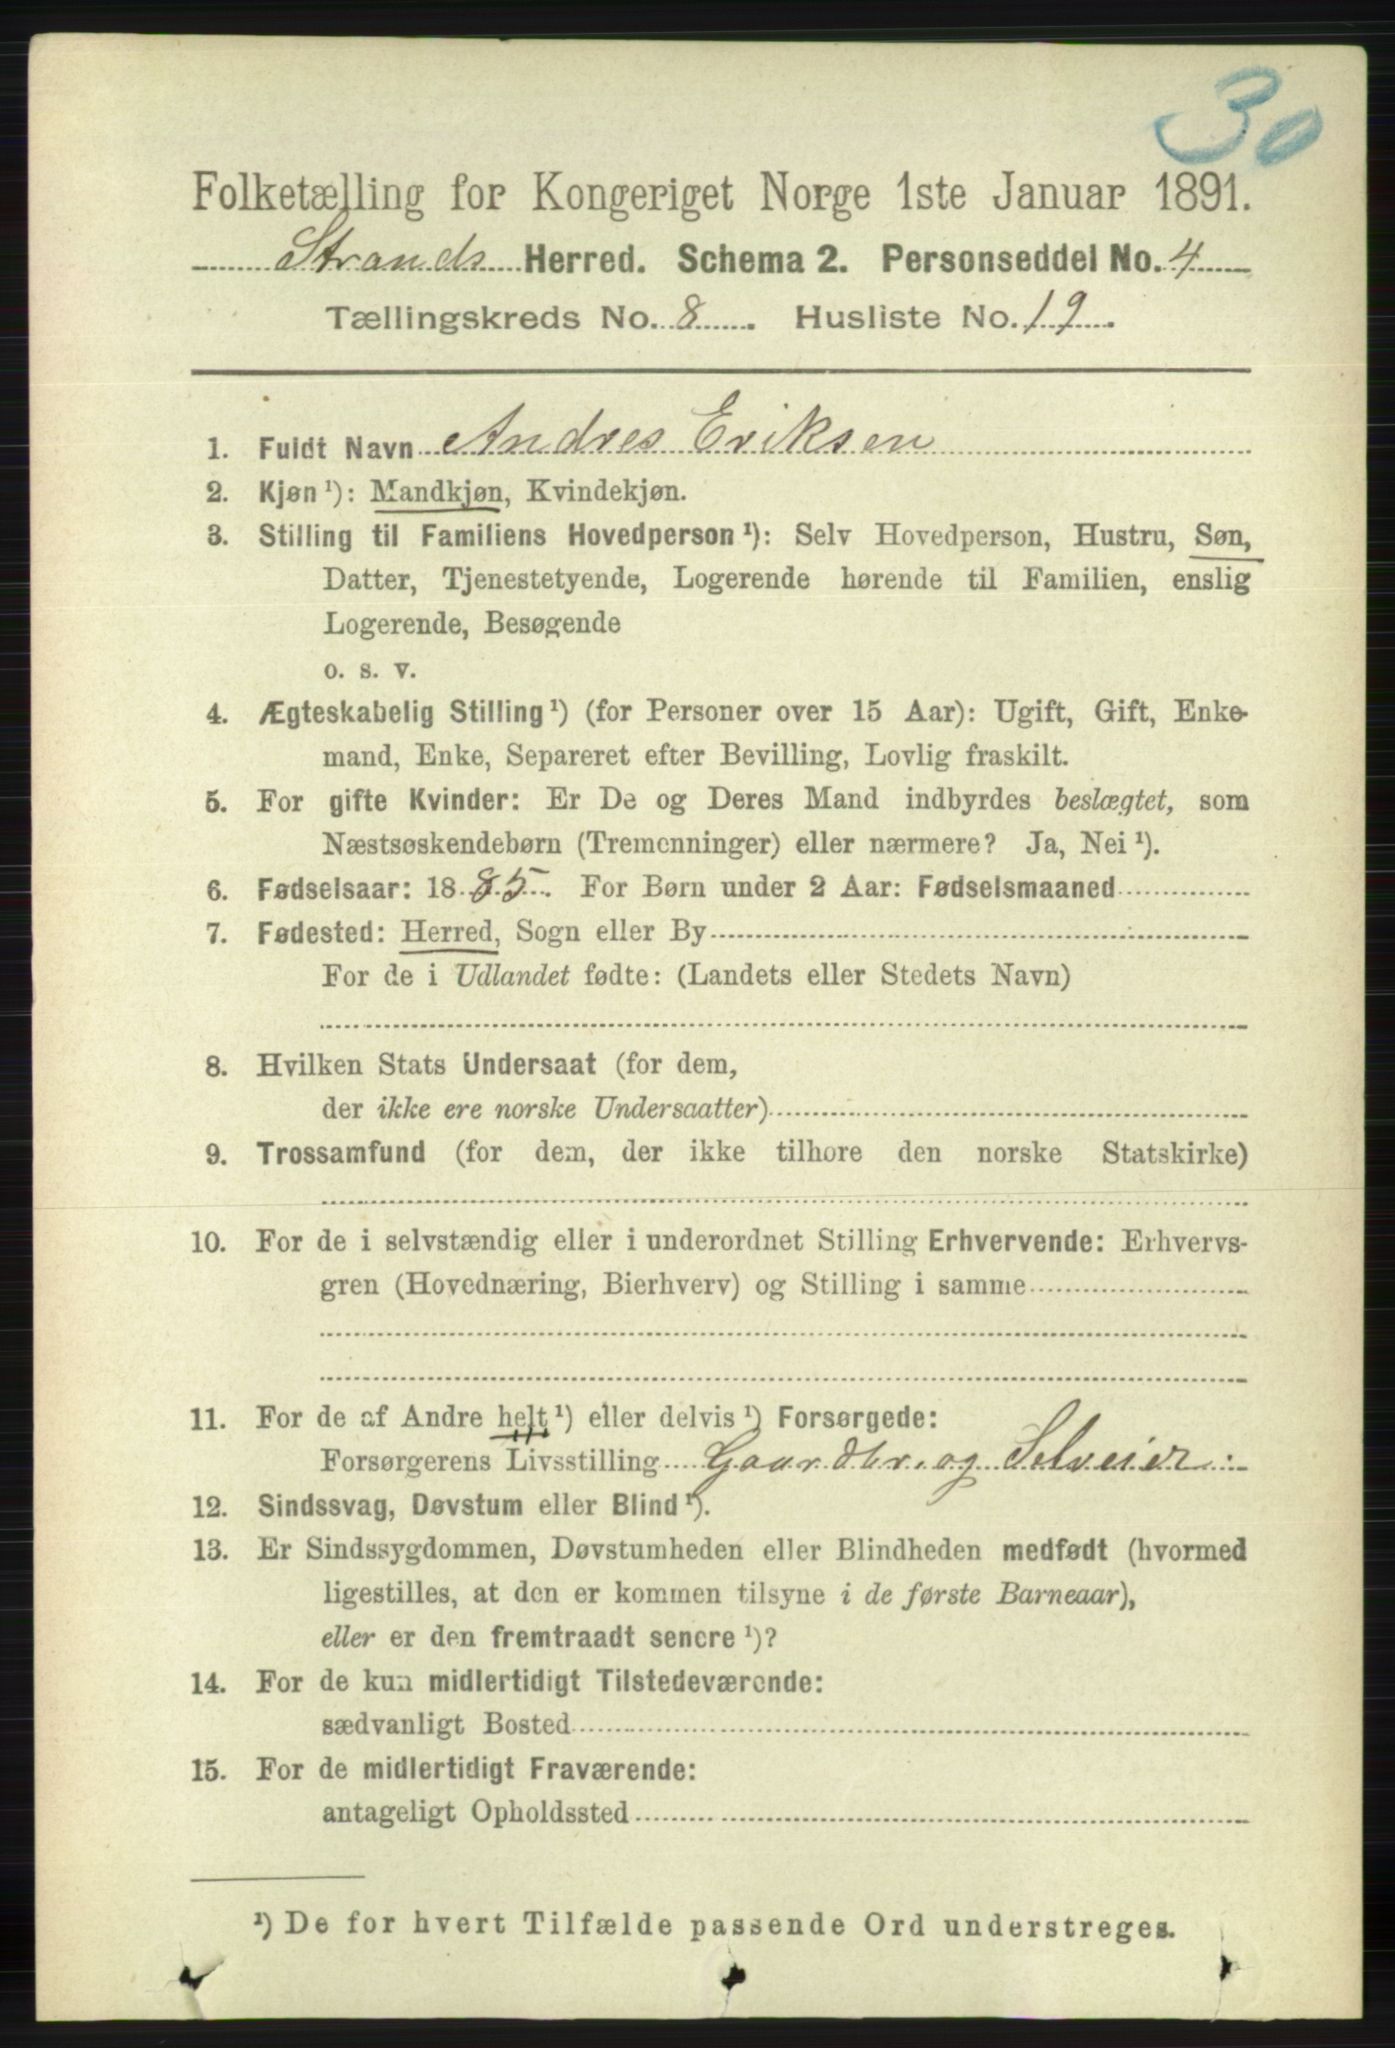 30
Folketælling for Kongeriget Norge 1ste Januar 1891.
Strands Herred. Schema 2. Personseddel No. 4
Tællingskreds No. 8. Husliste No. 19.
1. Fuldt Navn Andres Eriksen
2. Kjøn ¹): Mandkjøn, Kvindekjøn.
3. Stilling til Familiens Hovedperson ¹): Selv Hovedperson, Hustru, Søn,
Datter, Tjenestetyende, Logerende hørende til Familien, enslig
Logerende, Besøgende
o. s. v.
4. Ægteskabelig Stilling ¹) (for Personer over 15 Aar): Ugift, Gift, Enke-
mand, Enke, Separeret efter Bevilling, Lovlig fraskilt.
5. For gifte Kvinder: Er De og Deres Mand indbyrdes beslægtet, som
Næstsøskendebørn (Tremenninger) eller nærmere? Ja, Nei ¹).
6. Fødselsaar: 1885. For Børn under 2 Aar: Fødselsmaaned
7. Fødested: Herred, Sogn eller By
For de i Udlandet fødte: (Landets eller Stedets Navn)
8. Hvilken Stats Undersaat (for dem,
der ikke ere norske Undersaatter)
9. Trossamfund (for dem, der ikke tilhøre den norske Statskirke)
10. For de i selvstændig eller i underordnet Stilling Erhvervende: Erhvervs-
gren (Hovednæring, Bierhverv) og Stilling i samme
11. For de af Andre helt ¹) eller delvis ¹) Forsørgede:
Forsørgerens Livsstilling Gaardbr. og Selveier.
12. Sindssvag, Døvstum eller Blind ¹).
13. Er Sindssygdommen, Døvstumheden eller Blindheden medfødt (hvormed
ligestilles, at den er kommen tilsyne i de første Barneaar),
eller er den fremtraadt senere ¹)?
14. For de kun midlertidigt Tilstedeværende:
sædvanligt Bosted
15. For de midlertidigt Fraværende:
antageligt Opholdssted
¹) De for hvert Tilfælde passende Ord understreges.